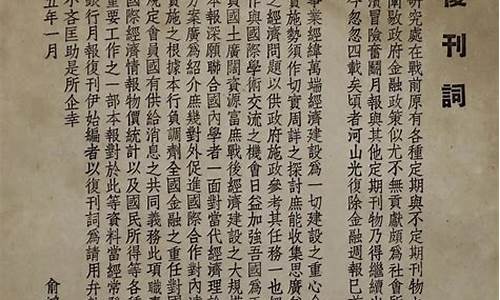 復刊詞
研究處在戰前原有各種定期與不定期刊物
闡敭政府金融政策似尤不無貢獻頗為社會
濱冒險奮鬭月報與其他定期刊物乃得繼續
今忽忽四載矣頃者河山光復除金融週報已
事業經緯萬端經濟建設為一切建設之重心
實施勢須作切實周詳之探討庶能收集思廣
之經濟問題以供政府施政參考其任務一也
作與國際學術交流之機會日益加強吾國為
員國土廣闊資源富庶戰後經濟建設之大規
本報深願聯合國內學者一面對當代經濟理
方案廣為紹介庶幾對外促進國際合作對內
實施之根據本行負調劑全國金融之重任對國
規定會員國有供給消息之共同義務此項職
國際經濟情報物價統計以及國民所得等各
重要工作之一部本報對於此等資料當經常
銀行月報復刊伊始編者以復刊詞為請用弁
不吝匡助是所企幸
五年一月
俞